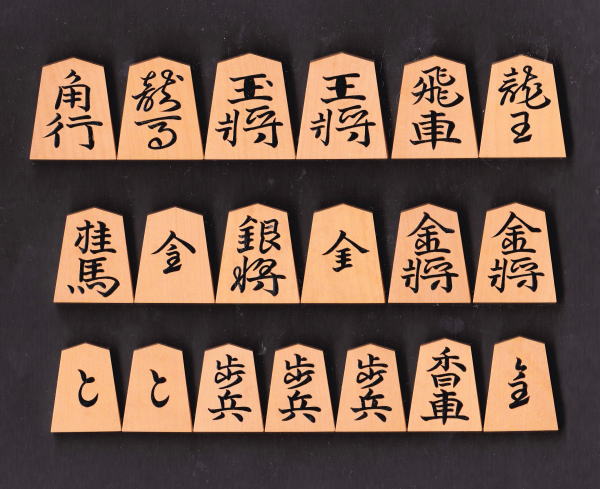 角行 龍馬 玉将 王将 飛車 龍王
桂馬 銀将 全 金将 金将
と と 歩兵 歩兵 歩兵 香車